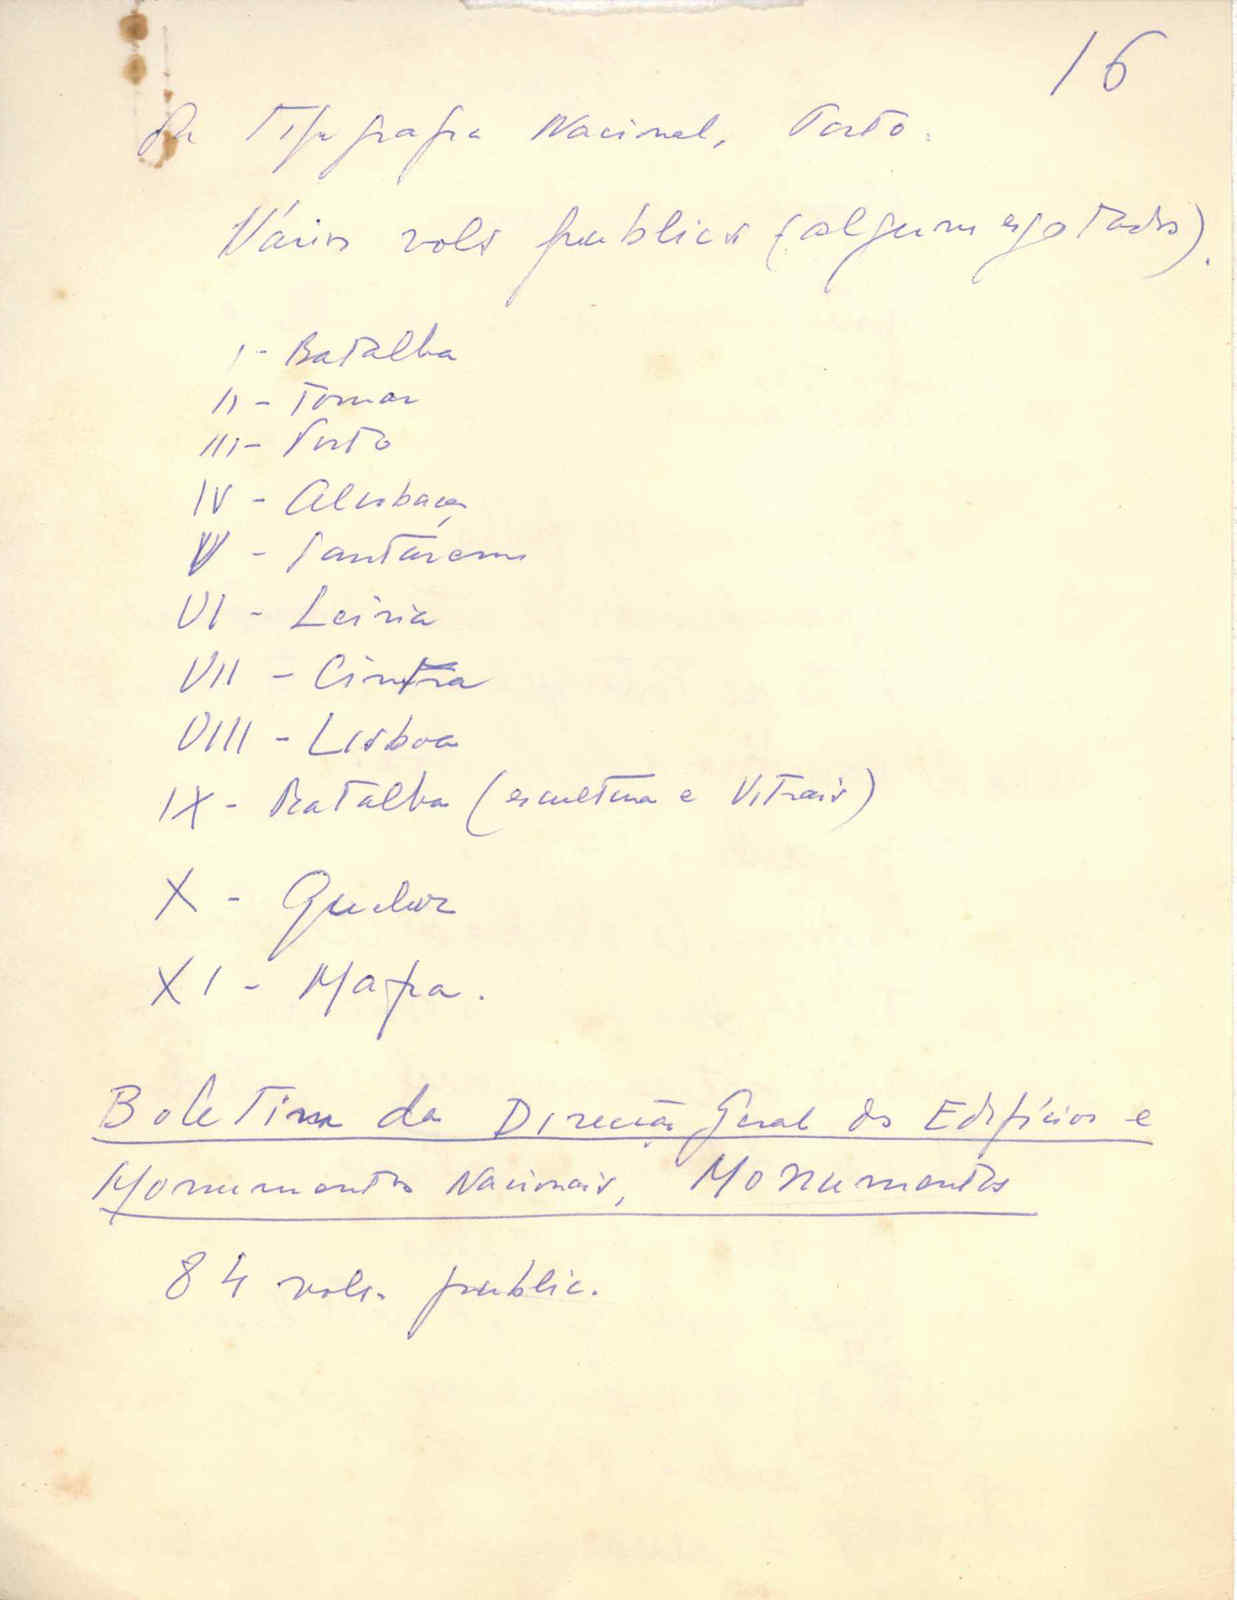 16
da Tipografia Nacional, Porto.
Vários vols publics (alguns esgotados).
I - Batalha
II - Tomar
III - Porto
IV - Alcobaça
V - Santárem
VI - Leiria
VII - Cintra
VIII - Lisboa
IX - Batalha (escultura e Vitrais)
X - Queluz
XI - Mafra.
Boletim da Direcção Geral dos Edifícios e
Monumentos Nacionais, Monumentos
84 vols. public.